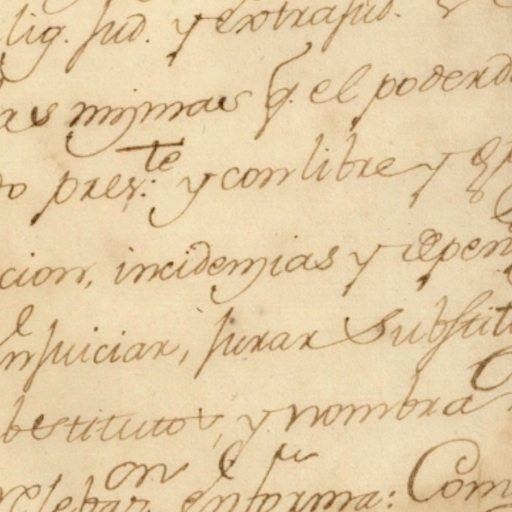 lig. Jud. y extrajud.
as mismas q. el poderd
do pres.te y con libre y g
cion, incidencias y depen
enjuiciar, jurar substit
bstitutos, y nombra
relebaon en forma: Com